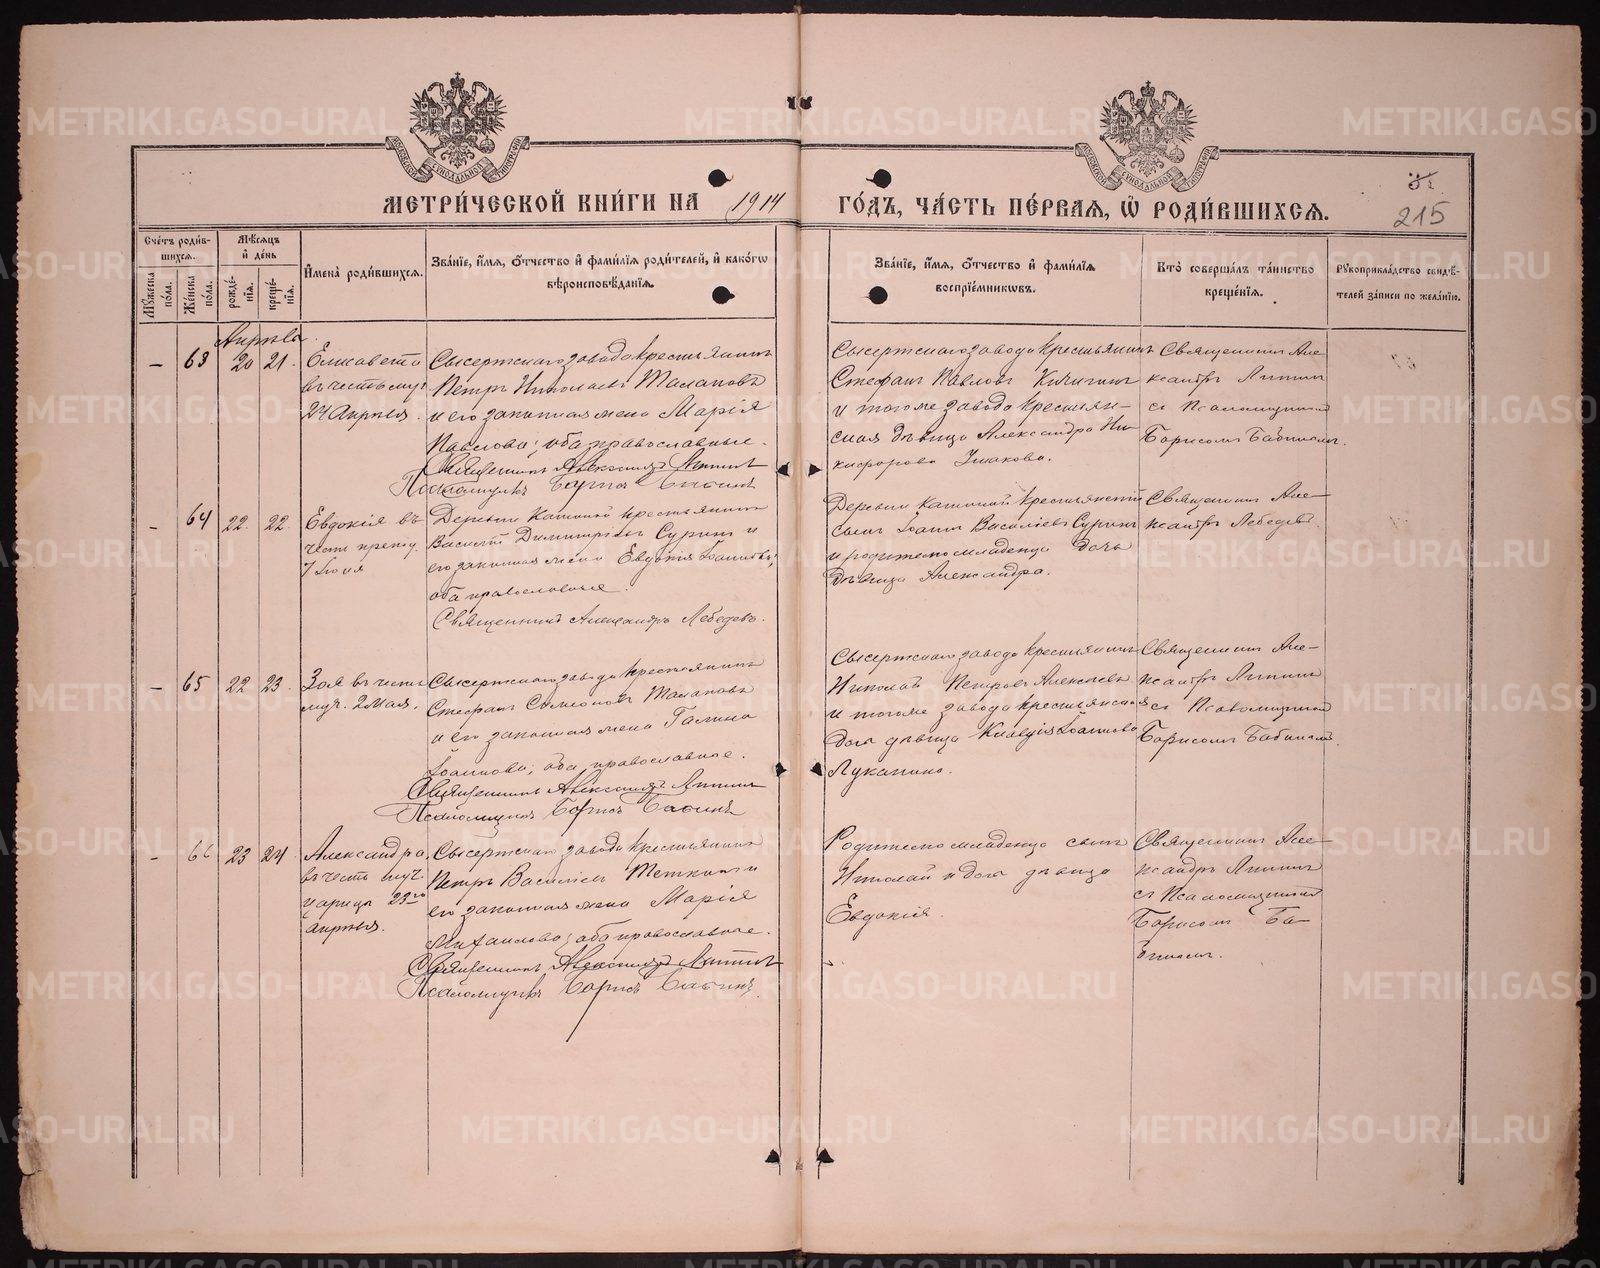 МЕТРИ́ЧЕСКОЙ КНИ́ГИ НА 1914 ГО́ДЪ, ЧА́СТЬ ПЕ́РВАЯ, Ѡ РОДИ́ВШИХСЯ.
215
Сче́тъ роди́в-
шихся.
Му́жеска по́ла.
Же́нска по́ла.
Мѣ́сяцъ и де́нь
рожде́нія.
креще́нія.
Имена̀ роди́вшихся.
Зва́ніе, и́мя, о́тчество и фами́лія роди́телей, и како́гѡ
вѣроисповѣ́данія.
Зва́ніе, и́мя, о́тчество и фами́лія
воспріе́мникѡвъ.
Кто̀ соверша́лъ та́инство
креще́нія.
Рꙋкоприкла́дство свидѣ́-
телей за́писи по жела́нію.
Апрѣль
– 63 20 21.
Елисавета
въ честь муч.
24 Апрѣля.
Сысертскаго завода крестьянинъ
Петръ Николаевъ Талановъ
и его законная жена Марія
Павлова; оба православные.
Священникъ Александръ
Псаломщикъ Борисъ Бабинъ
Сысертскаго завода крестьянинъ
Стефанъ Павловъ
и тогоже завода крестьян-
ская дѣвица Александра Ни-
кифорова Ушакова.
Священникъ Але-
ксандръ
съ Псаломщикомъ
Борисомъ Бабинымъ.
– 64 22. 22.
Евдокія въ
честь препод.
7 Іюля
Деревни крестьянинъ
Василій Димитріевъ Суринъ и
его законная жена Евдокія Іоаннова;
оба православные.
Священникъ Александръ Лебедевъ.
Деревни крестьянскій
сынъ Іоаннъ Василіевъ Суринъ
и родителю младенца дочь
дѣвица Александра.
Священникъ Але-
ксандръ Лебедевъ.
– 65 22 23.
Зоя въ честь
муч. 2 Мая.
Сысертскаго завода крестьянинъ
Стефанъ Симеоновъ Талановъ
и его законная жена Галина
Іоаннова; оба православные.
Священникъ Александръ
Псаломщикъ Борисъ Бабинъ
Сысертскаго завода крестьянинъ
Николай Петровъ Алексѣевъ
и тогоже завода крестьянская
дочь дѣвица Клавдія Іоаннова
Луканина.
Священникъ Але-
ксандръ
съ Псаломщикомъ
Борисомъ Бабинымъ.
– 66 23 24
Александра
въ честь муч.
царицы 23го
апрѣля.
Сысертскаго завода крестьянинъ
Петръ Василіевъ и
его законная жена Марія
Михаилова; оба православные.
Священникъ Александръ
Псаломщикъ Борисъ Бабинъ
Родителю младенца сынъ
Николай и дочь дѣвица
Евдокія.
Священникъ Але-
ксандръ
съ Псаломщикомъ
Борисомъ Ба-
бинымъ.
METRIKI.GASO-URAL.RU